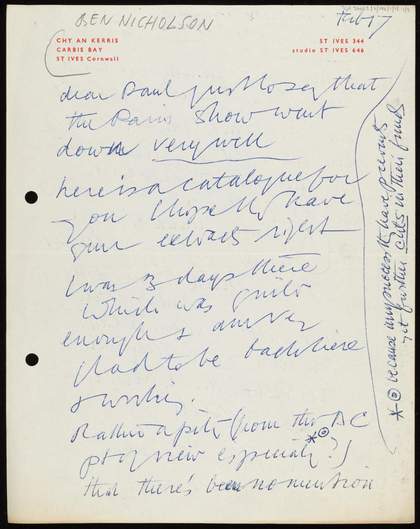 BEN NICHOLSON
Feb 17
CHY AN KERRIS
CARBIS BAY
ST IVES Cornwall
ST IVES 344
studio ST IVES 646
dear Paul just to say that
the Paris show went
down very well
here is a catalogue for
you I hope they have
your extracts right
I was 3 days there
which was quite
enough & am very
glad to be back here
& working.
Rather a pity (from the BC
pt of view especially?)
that there's been no mention
because any success they have prevents
yet further cuts in their funds